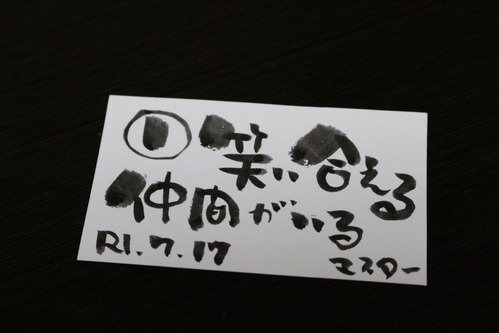 ① 笑い合える
仲間がいる
R1.7.17 マスター